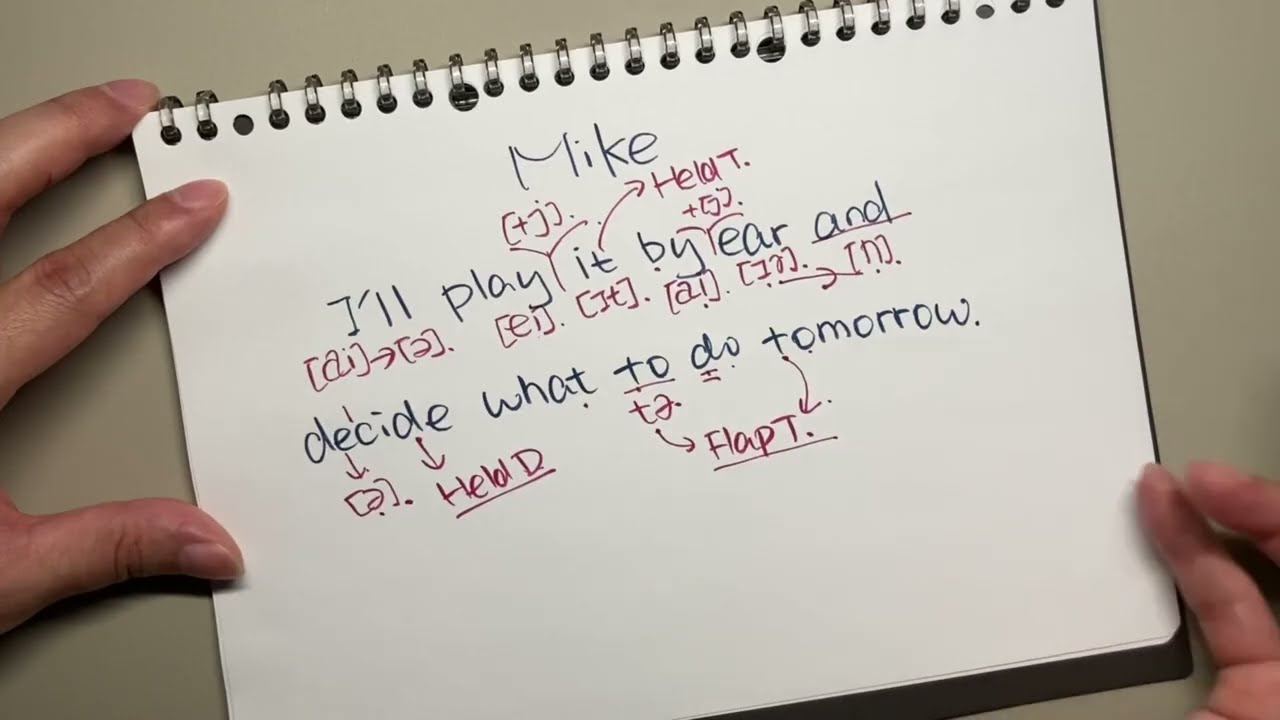 Mike
[+j]. Held T. +[j].
I'll play it by ear and
[ai]→[ə]. [ei]. [ɪt]. [ai]. [ɪə]. → [n].
decide what to do tomorrow.
[ə]. Held D tə. Flap T.